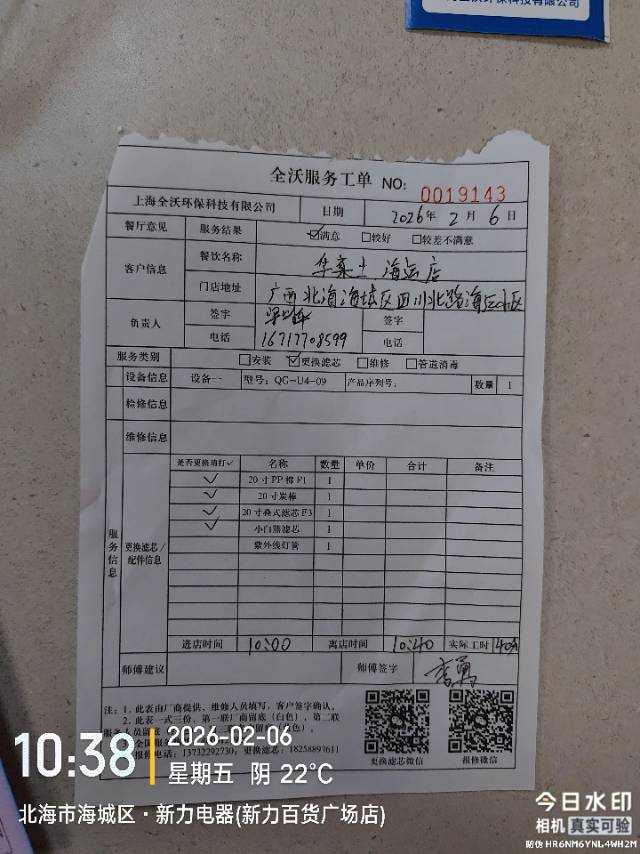 环保科技有限公司
全沃服务工单 NO: 0019143
上海全沃环保科技有限公司 日期 2026年 2月 6日
餐厅意见 服务结果 ☑满意 □较好 □较差不满意
客户信息 餐饮名称 华莱士 海运店
门店地址 广西北海海城区四川北路海运小区
负责人 签字 签字
电话 16717708599 电话
服务类别 □安装 ☑更换滤芯 □维修 □管道消毒
设备信息 设备一 型号: QG-U4-09 产品序列号: 数量 1
检修信息
维修信息
服务信息 更换滤芯/配件信息
是否更换请打✓ 名称 数量 单价 合计 备注
✓ 20寸PP棉F1 1
✓ 20寸炭棒 1
✓ 20寸叠式滤芯F3 1
✓ 小白膜滤芯 1
紫外线灯管 1
进店时间 10:00 离店时间 10:40 实际工时 40分
师傅建议 师傅签字 李勇
注: 1. 此表由厂商提供、维修人员填写, 客户签字确认。
2. 此表一式三份, 第一联厂商留底 (白色), 第二联
服务人员留底
全国服务
报修电话: 13732292730, 更换滤芯: 18258897611
更换滤芯微信 报修微信
10:38
2026-02-06
星期五 阴 22°C
北海市海城区·新力电器(新力百货广场店)
今日水印
相机 真实可验
防伪 HR6NM6YNL4WH2M